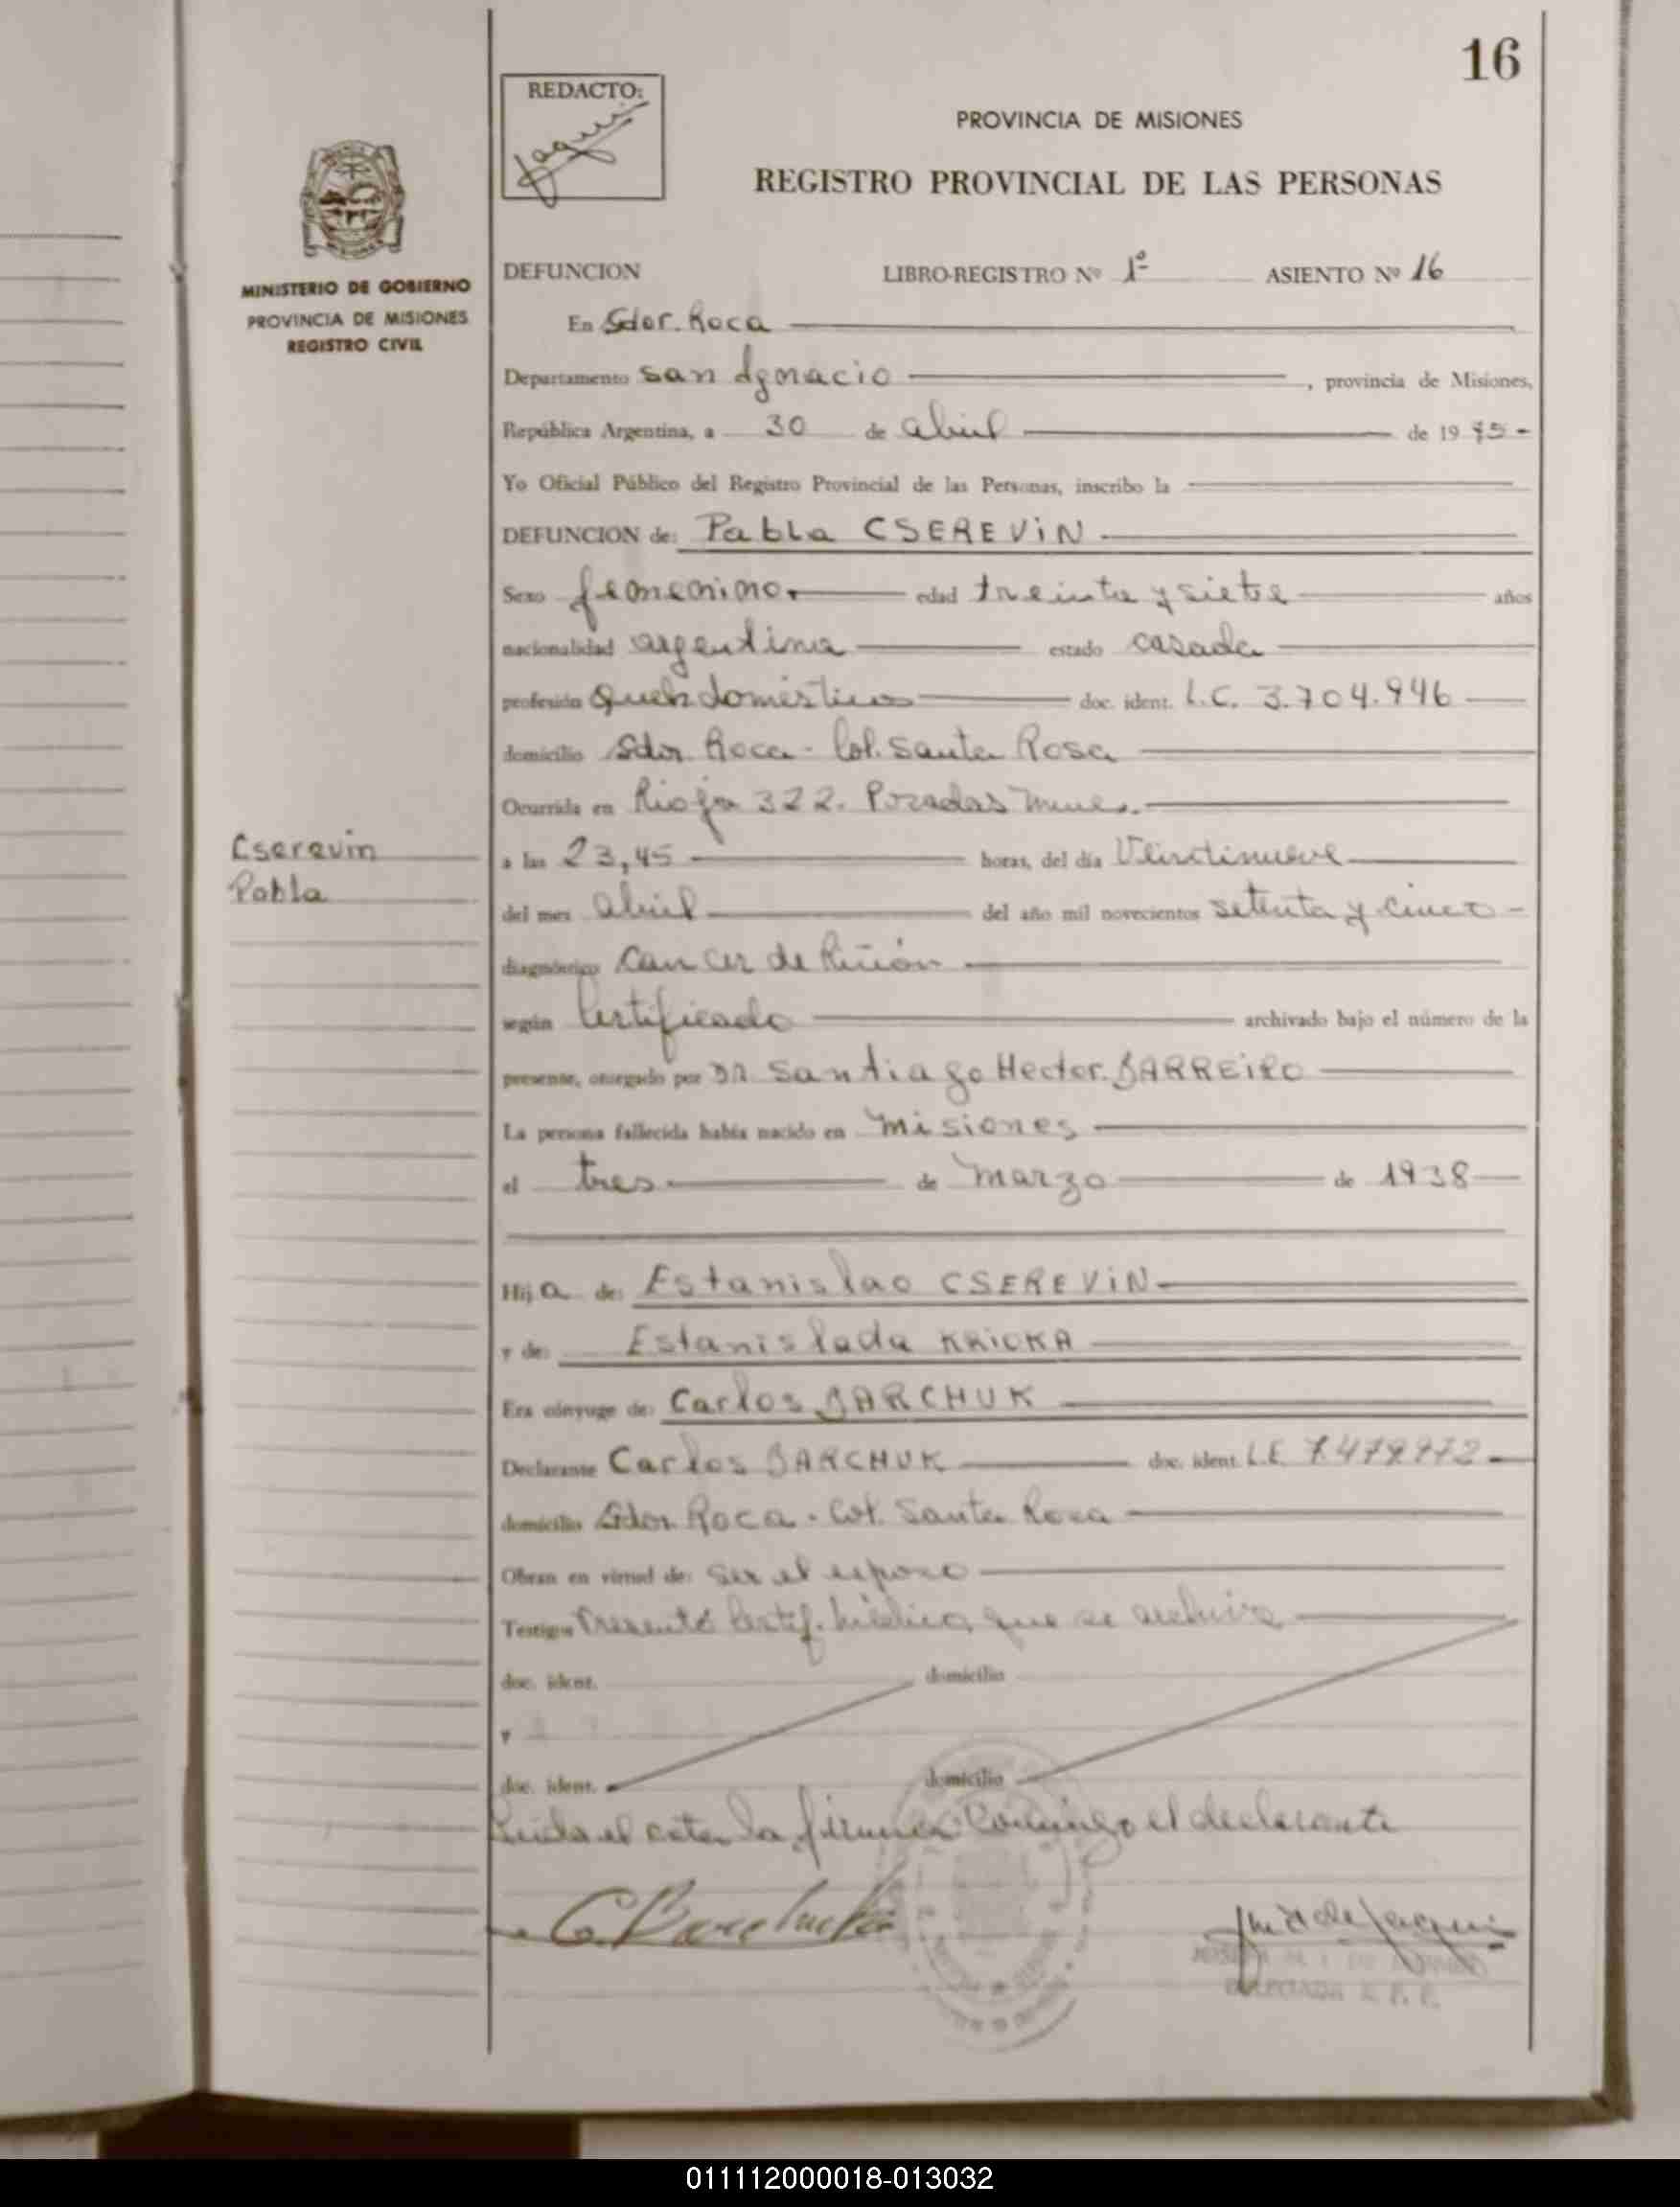 16
REDACTO:
PROVINCIA DE MISIONES
REGISTRO PROVINCIAL DE LAS PERSONAS
MINISTERIO DE GOBIERNO
PROVINCIA DE MISIONES
REGISTRO CIVIL
DEFUNCION LIBRO-REGISTRO Nº 1º ASIENTO Nº 16
En Gdor. Roca
Departamento San Ignacio, provincia de Misiones,
República Argentina, a 30 de abril de 1975-
Yo Oficial Público del Registro Provincial de las Personas, inscribo la
DEFUNCION de: Pabla CSEREVIN
Sexo femenino. edad treinta y siete años
nacionalidad argentina estado casada
profesión Queh. domésticos doc. ident. L.C. 3.704.946
domicilio Gdor. Roca - Col. Santa Rosa
Ocurrida en Rioja 322. Posadas Mnes.
Cserevin
Pabla
a las 23,45 horas, del día Veintinueve
del mes abril del año mil novecientos setenta y cinco -
diagnóstico Cancer de Riñón
según Certificado archivado bajo el número de la
presente, otorgado por Dr Santiago Hector BARREIRO
La persona fallecida había nacido en Misiones
el tres de Marzo de 1938
Hija de: Estanislao CSEREVIN
y de: Estanislada KRICKA
Era cónyuge de: Carlos BARCHUK
Declarante Carlos BARCHUK doc. ident. L.E. 7.479.972
domicilio Gdor. Roca - Col. Santa Rosa
Obran en virtud de: Ser el esposo
Testigos Presentó Certif. Médico que se archiva
doc. ident. domicilio
y
doc. ident. domicilio
Leida el acta la firma conmigo el declarante
C. Barchuk
011112000018-013032